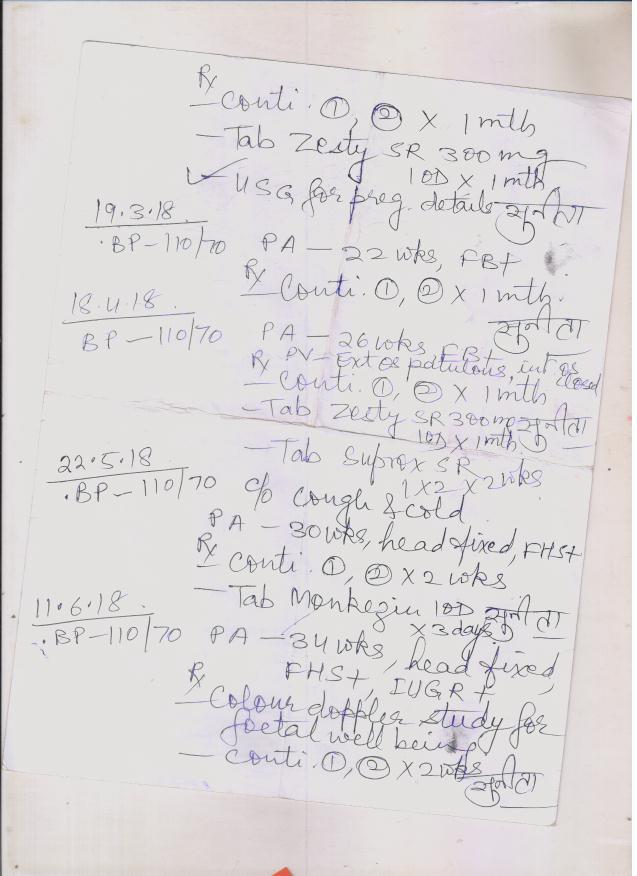 Rx
- Conti. ①, ② X 1 mth
- Tab Zesty SR 300 mg
1OD X 1 mth
✓ USG for preg. details सुनीता
19.3.18
BP - 110/70 PA - 22 wks, FB+
Rx
- Conti. ①, ② X 1 mth.
सुनीता
18.4.18.
BP - 110/70 PA - 26 wks, FB+
Rx PV - Ext os patulous, int os closed
- Conti. ①, ② X 1 mth
- Tab Zesty SR 300 mg सुनीता
1OD X 1 mth
- Tab Suprox SR
1 X 2 X 2 wks
22.5.18
BP - 110/70 c/o cough & cold
PA - 30 wks, head fixed, FHS+
Rx
- Conti. ①, ② X 2 wks
- Tab Monkezin 1OD सुनीता
X 3 days
11.6.18.
BP - 110/70 PA - 34 wks, head fixed,
FHS+, IUGR+
Rx
- Colour doppler study for
foetal well being
- Conti. ①, ② X 2 wks
सुनीता